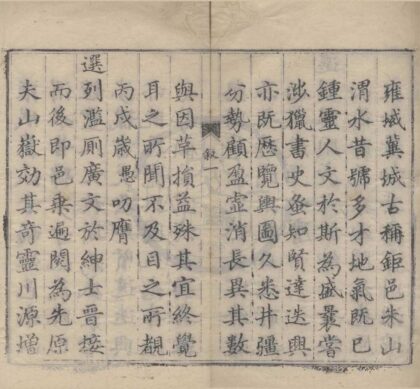 雍城冀城古稱鉅邑朱山
渭水昔號多才地氣既已
鍾靈人文於斯為盛曩嘗
涉獵書史亟知賢達迭興
亦既歷覽輿圖久悉井疆
分勢顧盈虛消長異其數
敘一
與因革損益殊其宜終覺
耳之所聞不及目之所覩
丙戌歲愚叨膺
選列濫厠廣文於紳士晉接
而後即邑乘遍閱為先原
夫山嶽効其奇靈川源增